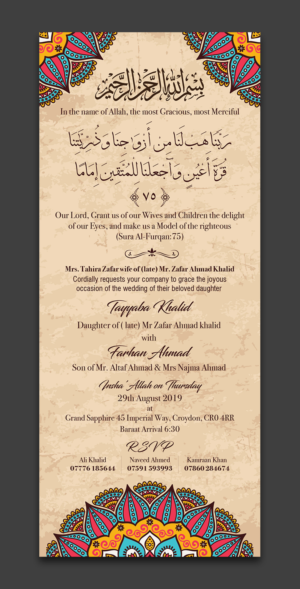 بسم الله الرحمن الرحيم
In the name of Allah, the most Gracious, most Merciful
رَبَّنَا هَبْ لَنَا مِنْ أَزْوَاجِنَا وَذُرِّيَّتِنَا
قُرَّةَ أَعْيُنٍ وَاجْعَلْنَا لِلْمُتَّقِينَ إِمَامًا
﴿٧٥﴾
Our Lord, Grant us of our Wives and Children the delight
of our Eyes, and make us a Model of the righteous
(Sura Al-Furqan:75)
Mrs. Tahira Zafar wife of (late) Mr. Zafar Ahmad Khalid
Cordially requests your company to grace the joyous
occasion of the wedding of their beloved daughter
Tayyaba Khalid
Daughter of ( late) Mr Zafar Ahmad khalid
with
Farhan Ahmad
Son of Mr. Altaf Ahmad & Mrs Najma Ahmad
Insha'Allah on Thursday
29th August 2019
at
Grand Sapphire 45 Imperial Way, Croydon, CR0 4RR
Baraat Arrival 6:30
RSVP
Ali Khalid Naveed Ahmed Kamraan Khan
07776 185644 07591 593993 07860 284674